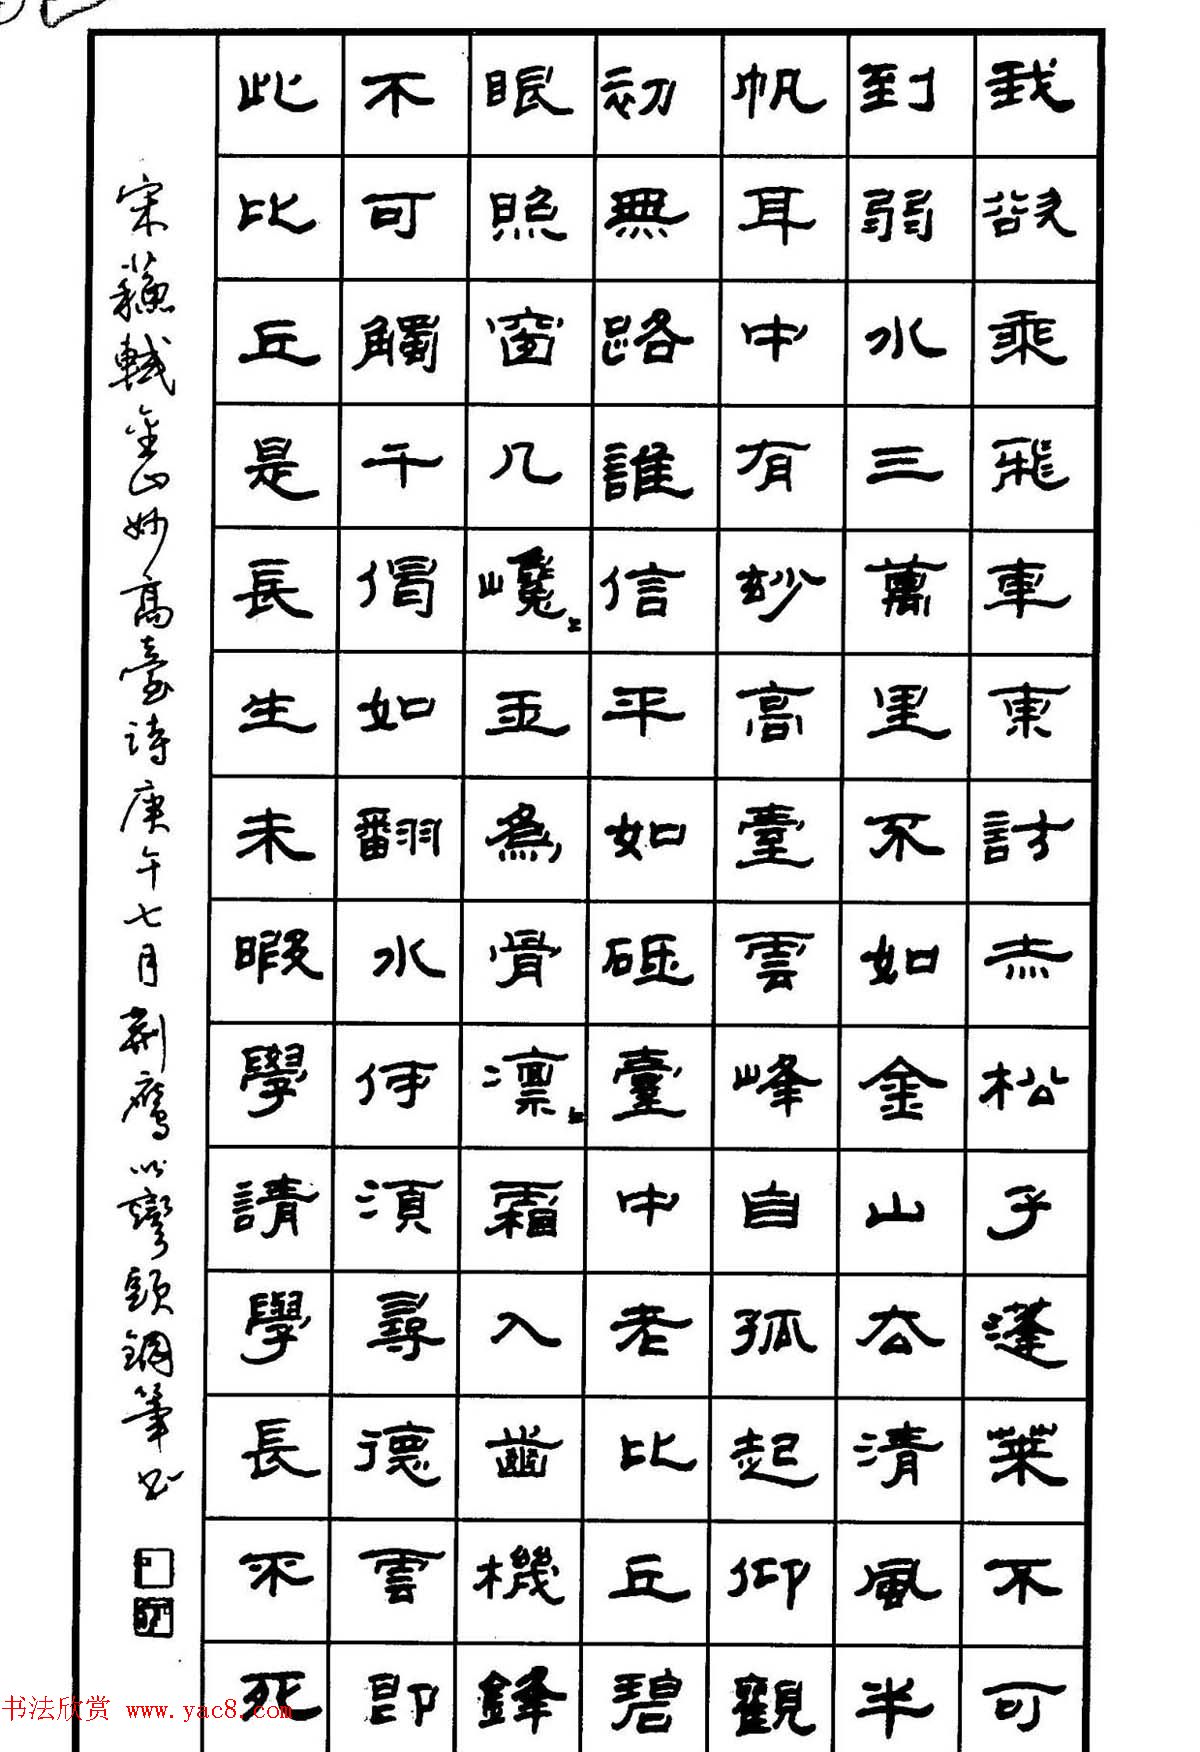 我欲乘飛車東訪赤松子蓬萊不可
到弱水三萬里不如金山去清風半
帆耳中有妙高臺雲峰自孤起仰觀
初無路誰信平如砥臺中老比丘碧
眼照窗几巉〻玉為骨凛〻霜入齒機鋒
不可觸千偈如翻水何須尋德雲即
此比丘是長生未暇學請學長不死
宋蘇軾金山妙高臺詩庚午七月荆鹰以彎頭鋼筆書
书法欣赏 www.yac8.com